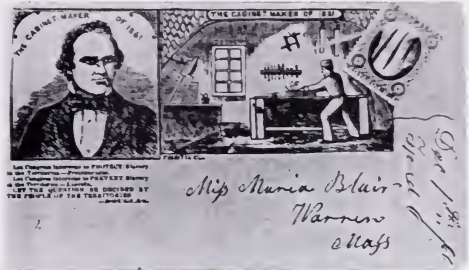 THE CABINET MAKER OF 1861
THE CABINET MAKER OF 1861
Let Congress intervene to PROTECT Slavery
in the Territories—
Let Congress intervene to PREVENT Slavery
in the Territories—Lincoln.
LET THE QUESTION BE DECIDED BY
THE PEOPLE OF THE TERRITORIES
Miss Maria Blair
Warren
Mass